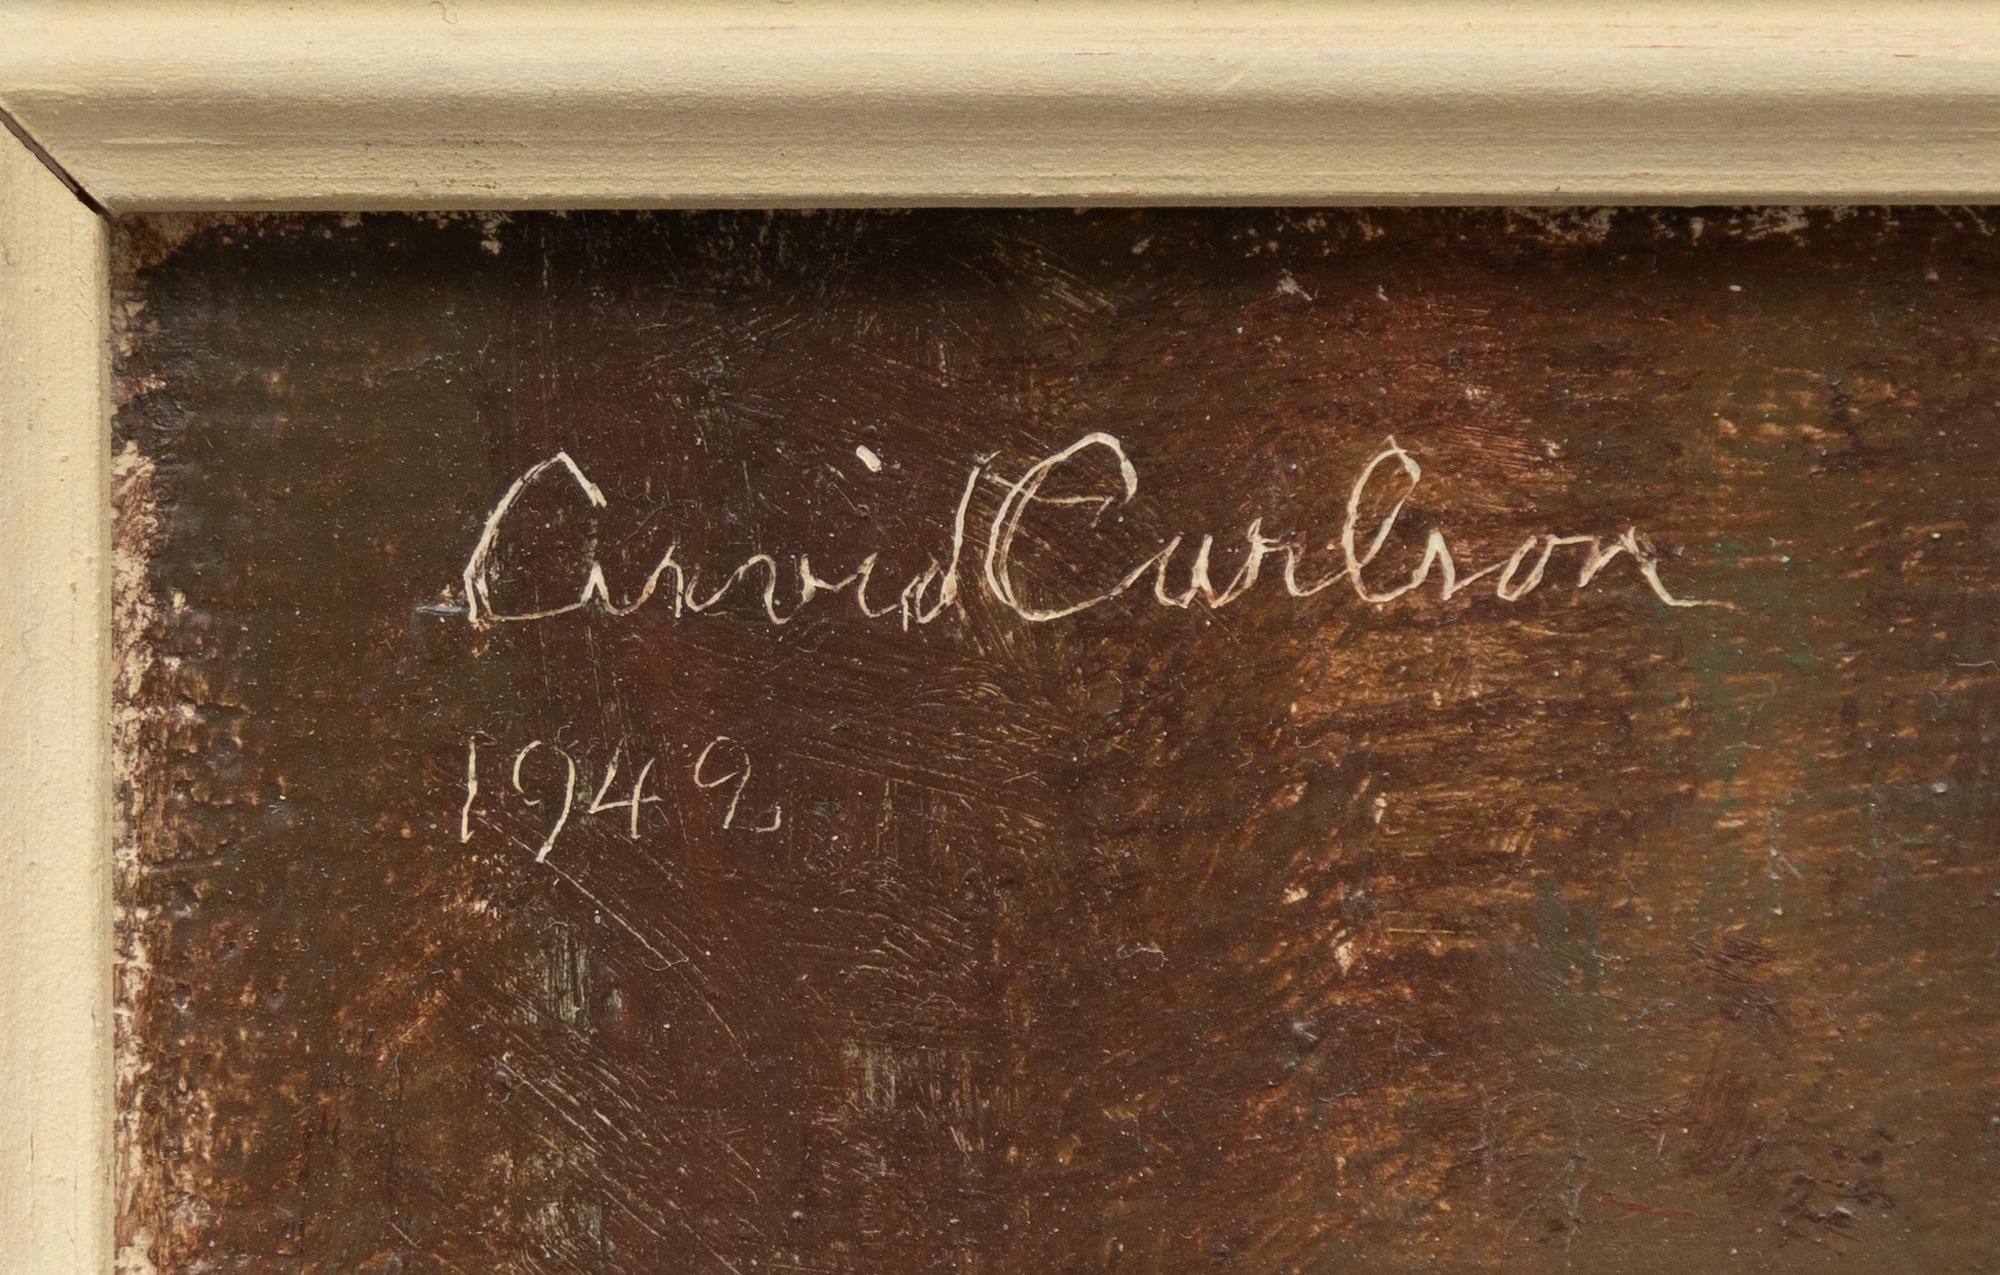 Arvid Carlson
1949